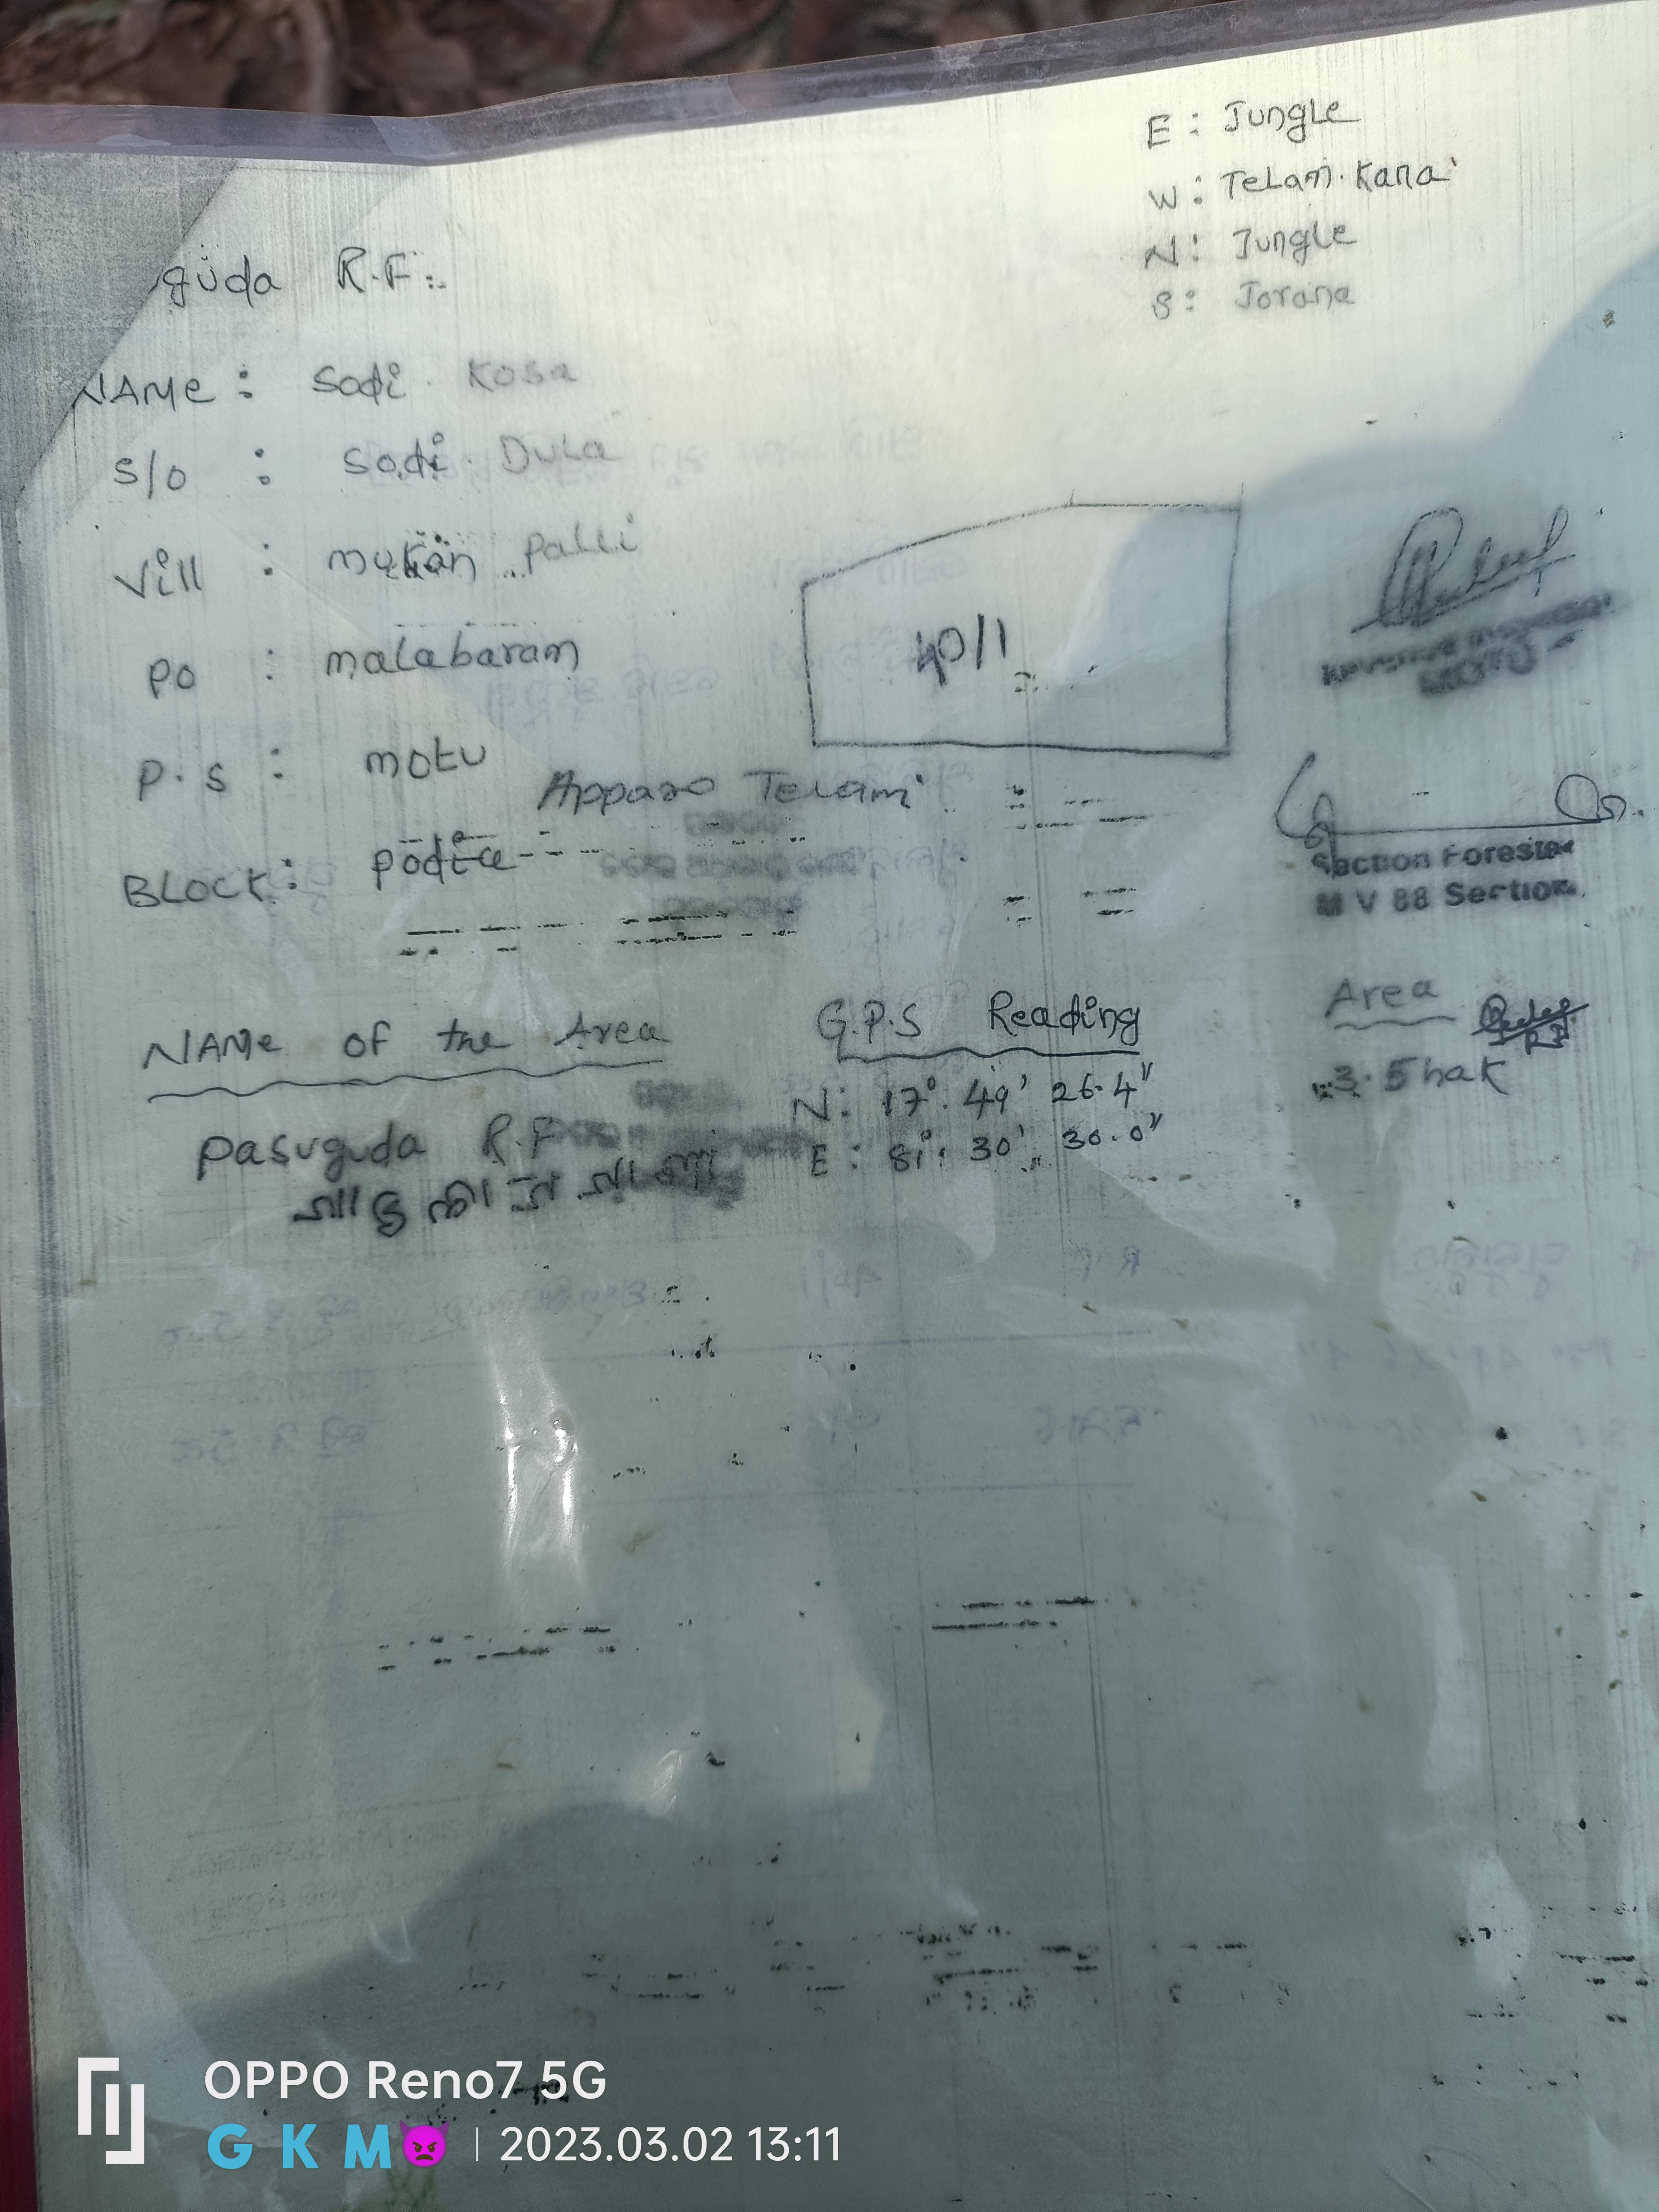 E : Jungle
W : Telam. Kana
N : Jungle
S : Jorana
guda R.F:.
NAMe : Sodi . Kosa
S/o : Sodi . Dula
Vill : mukan Palli
Po : malabaram
40/1
P.S : motu
Apparo Telami
BLock : podia
Section Forester
M V 88 Section
NAMe of the Area
G.P.S Reading
Area
Pasuguda R.F
N : 17° 49' 26.4"
E : 81° 30' 30.0"
3.5 hak
OPPO Reno7 5G
G K M👿 | 2023.03.02 13:11